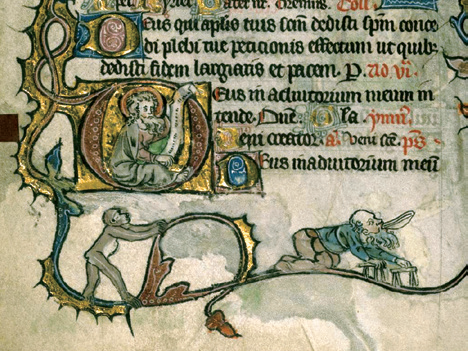 Pater nr. Oremus. Coll
Deus qui aplis tuis scm dedisti spm conce
di plebi tue peticionis effectum ut quib;
dedisti fidem largiaris et pacem. P. Ad vi.
Deus in adiutorium meum in
tende. Dne. Gla
Veni creator. a. Veni sce. ps
Deus in adiutorium meū